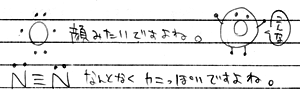 :Ö: 顔みたいですよね。
N̈≡N̈ なんとなくカニっぽいですよね。